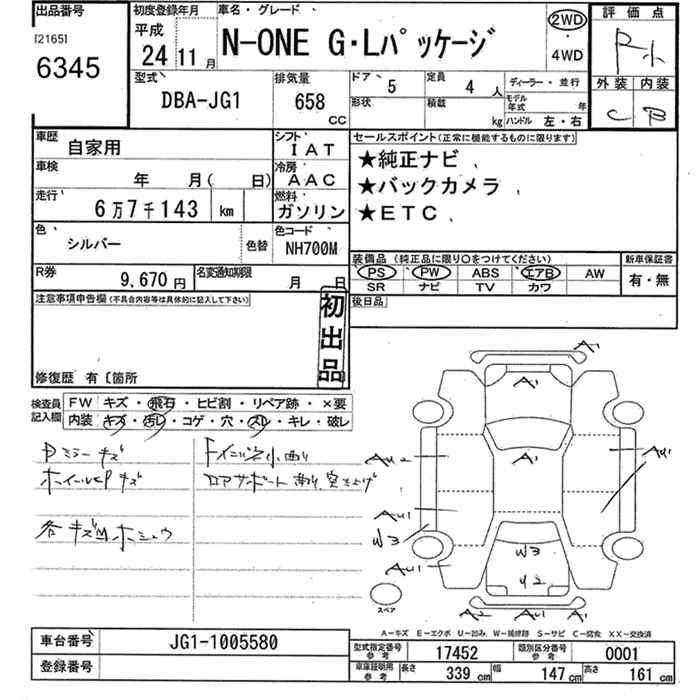 出品番号
[2165]
6345
初度登録年月
平成
24 11月
車名・グレード
N-ONE G・Lパッケージ
2WD
・
4WD
評価点
R
外装 内装
C B
型式
DBA-JG1
排気量
658
CC
ドア
5
形状
定員
4人
積載
kg
ディーラー・並行
モデル年式 年
ハンドル 左・右
車歴
自家用
シフト
IAT
車検
年 月( 日)
冷房
AAC
走行
6万7千143 km
燃料
ガソリン
色
シルバー
色替
色コード
NH700M
R券
9,670円
名変通知期限
月 日
セールスポイント(正常に機能するものに限ります)
★純正ナビ
★バックカメラ
★ETC
装備品(純正品に限り○をつけてください)
PS PW ABS エアB AW
SR ナビ TV カワ
新車保証書
有・無
後日品
注意事項申告欄(不具合内容等は具体的に記入して下さい)
初出品
修復歴 有〔箇所
検査員記入欄
FW キズ・飛石・ヒビ割・リペア跡・×要
内装 キズ・汚レ・コゲ・穴・スレ・キレ・破レ
Dミラーキズ
ホイールCPキズ
各キズM ホシュウ
Fインパネ小曲り
ロアサポート曲り 突き上げ
A1
A1
A1
AU2
AU1
AU1
W3
W3
AU1
U2
A2 AU1 A1
スペア
A-キズ E-エクボ U-凹み W-補修跡 S-サビ C-腐食 XX-交換済
車台番号
JG1-1005580
登録番号
型式指定番号
参考
17452
類別区分番号
参考
0001
車庫証明用
参考
長さ 339cm 幅 147cm 高さ 161cm